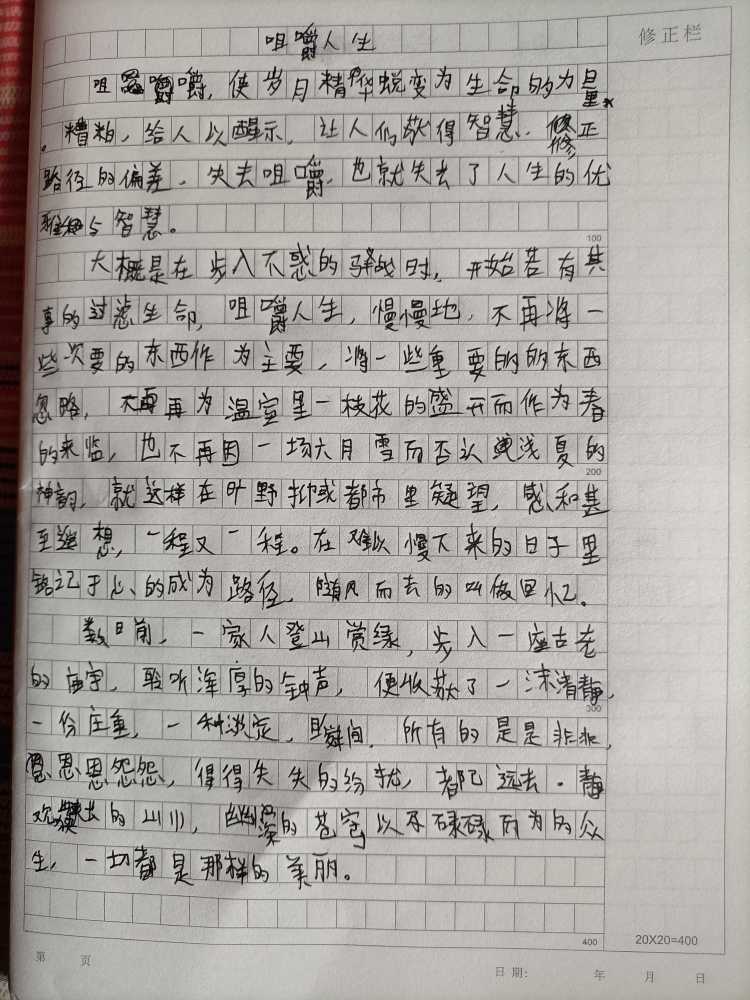 修正栏
咀嚼人生
咀嚼,使岁月精华蜕变为生命的力量
。糟粕,给人以醒示,让人们获得智慧,修正
路径的偏差,失去咀嚼,也就失去了人生的优
雅与智慧。
100
大概是在步入不惑的驿站时,开始若有其
事的过滤生命,咀嚼人生,慢慢地,不再将一
些次要的东西作为主要,将一些重要的的东西
忽略,不再为温室里一枝花的盛开而作为春
的来临,也不再因一场六月雪而否认浅夏的
200
神韵,就这样在旷野抑或都市里凝望,感和甚
至遐想,一程又一程。在难以慢下来的日子里
铭记于心的成为路径,随风而去的叫做回忆。
数日前,一家人登山赏绿,步入一座古老
的庙宇,聆听浑厚的钟声,便收获了一沫清静,
300
一份庄重,一种淡定,瞬间,所有的是是非非,
恩恩怨怨,得得失失的纷扰,都已远去。静
观的山川,幽深的苍穹以及碌碌而为的众
生,一切都是那样的美丽。
400
20X20=400
第 页
日期: 年 月 日